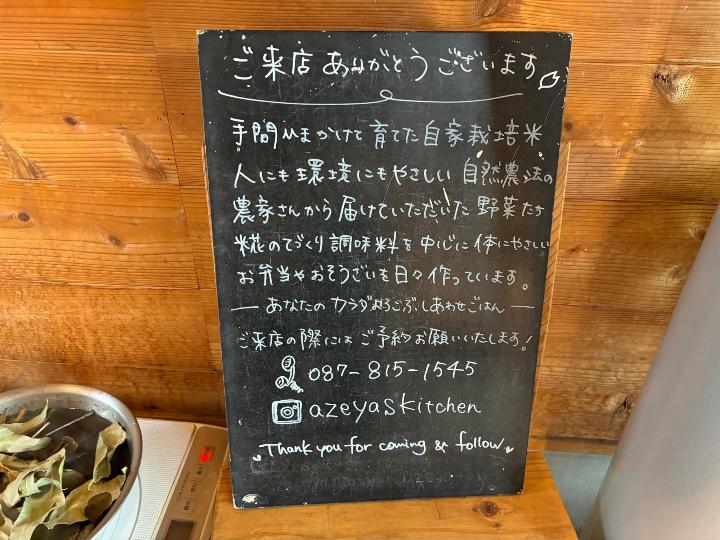 ご来店ありがとうございます
手間ひまかけて育てた自家栽培米
人にも環境にもやさしい自然農法の
農家さんから届けていただいた野菜たち
糀の手づくり調味料を中心に体にやさしい
お弁当やおそうざいを日々作っています。
― あなたのカラダよろこぶ、しあわせごはん ―
ご来店の際にはご予約お願いいたします!
087-815-1545
azeyaskitchen
Thank you for coming & follow